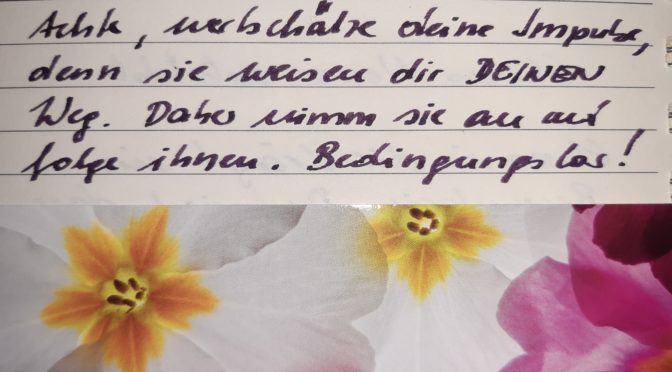 Achte, wertschätze deine Impulse,
denn sie weisen dir DEINEN
Weg. Daher nimm sie an und
folge ihnen. Bedingungslos!